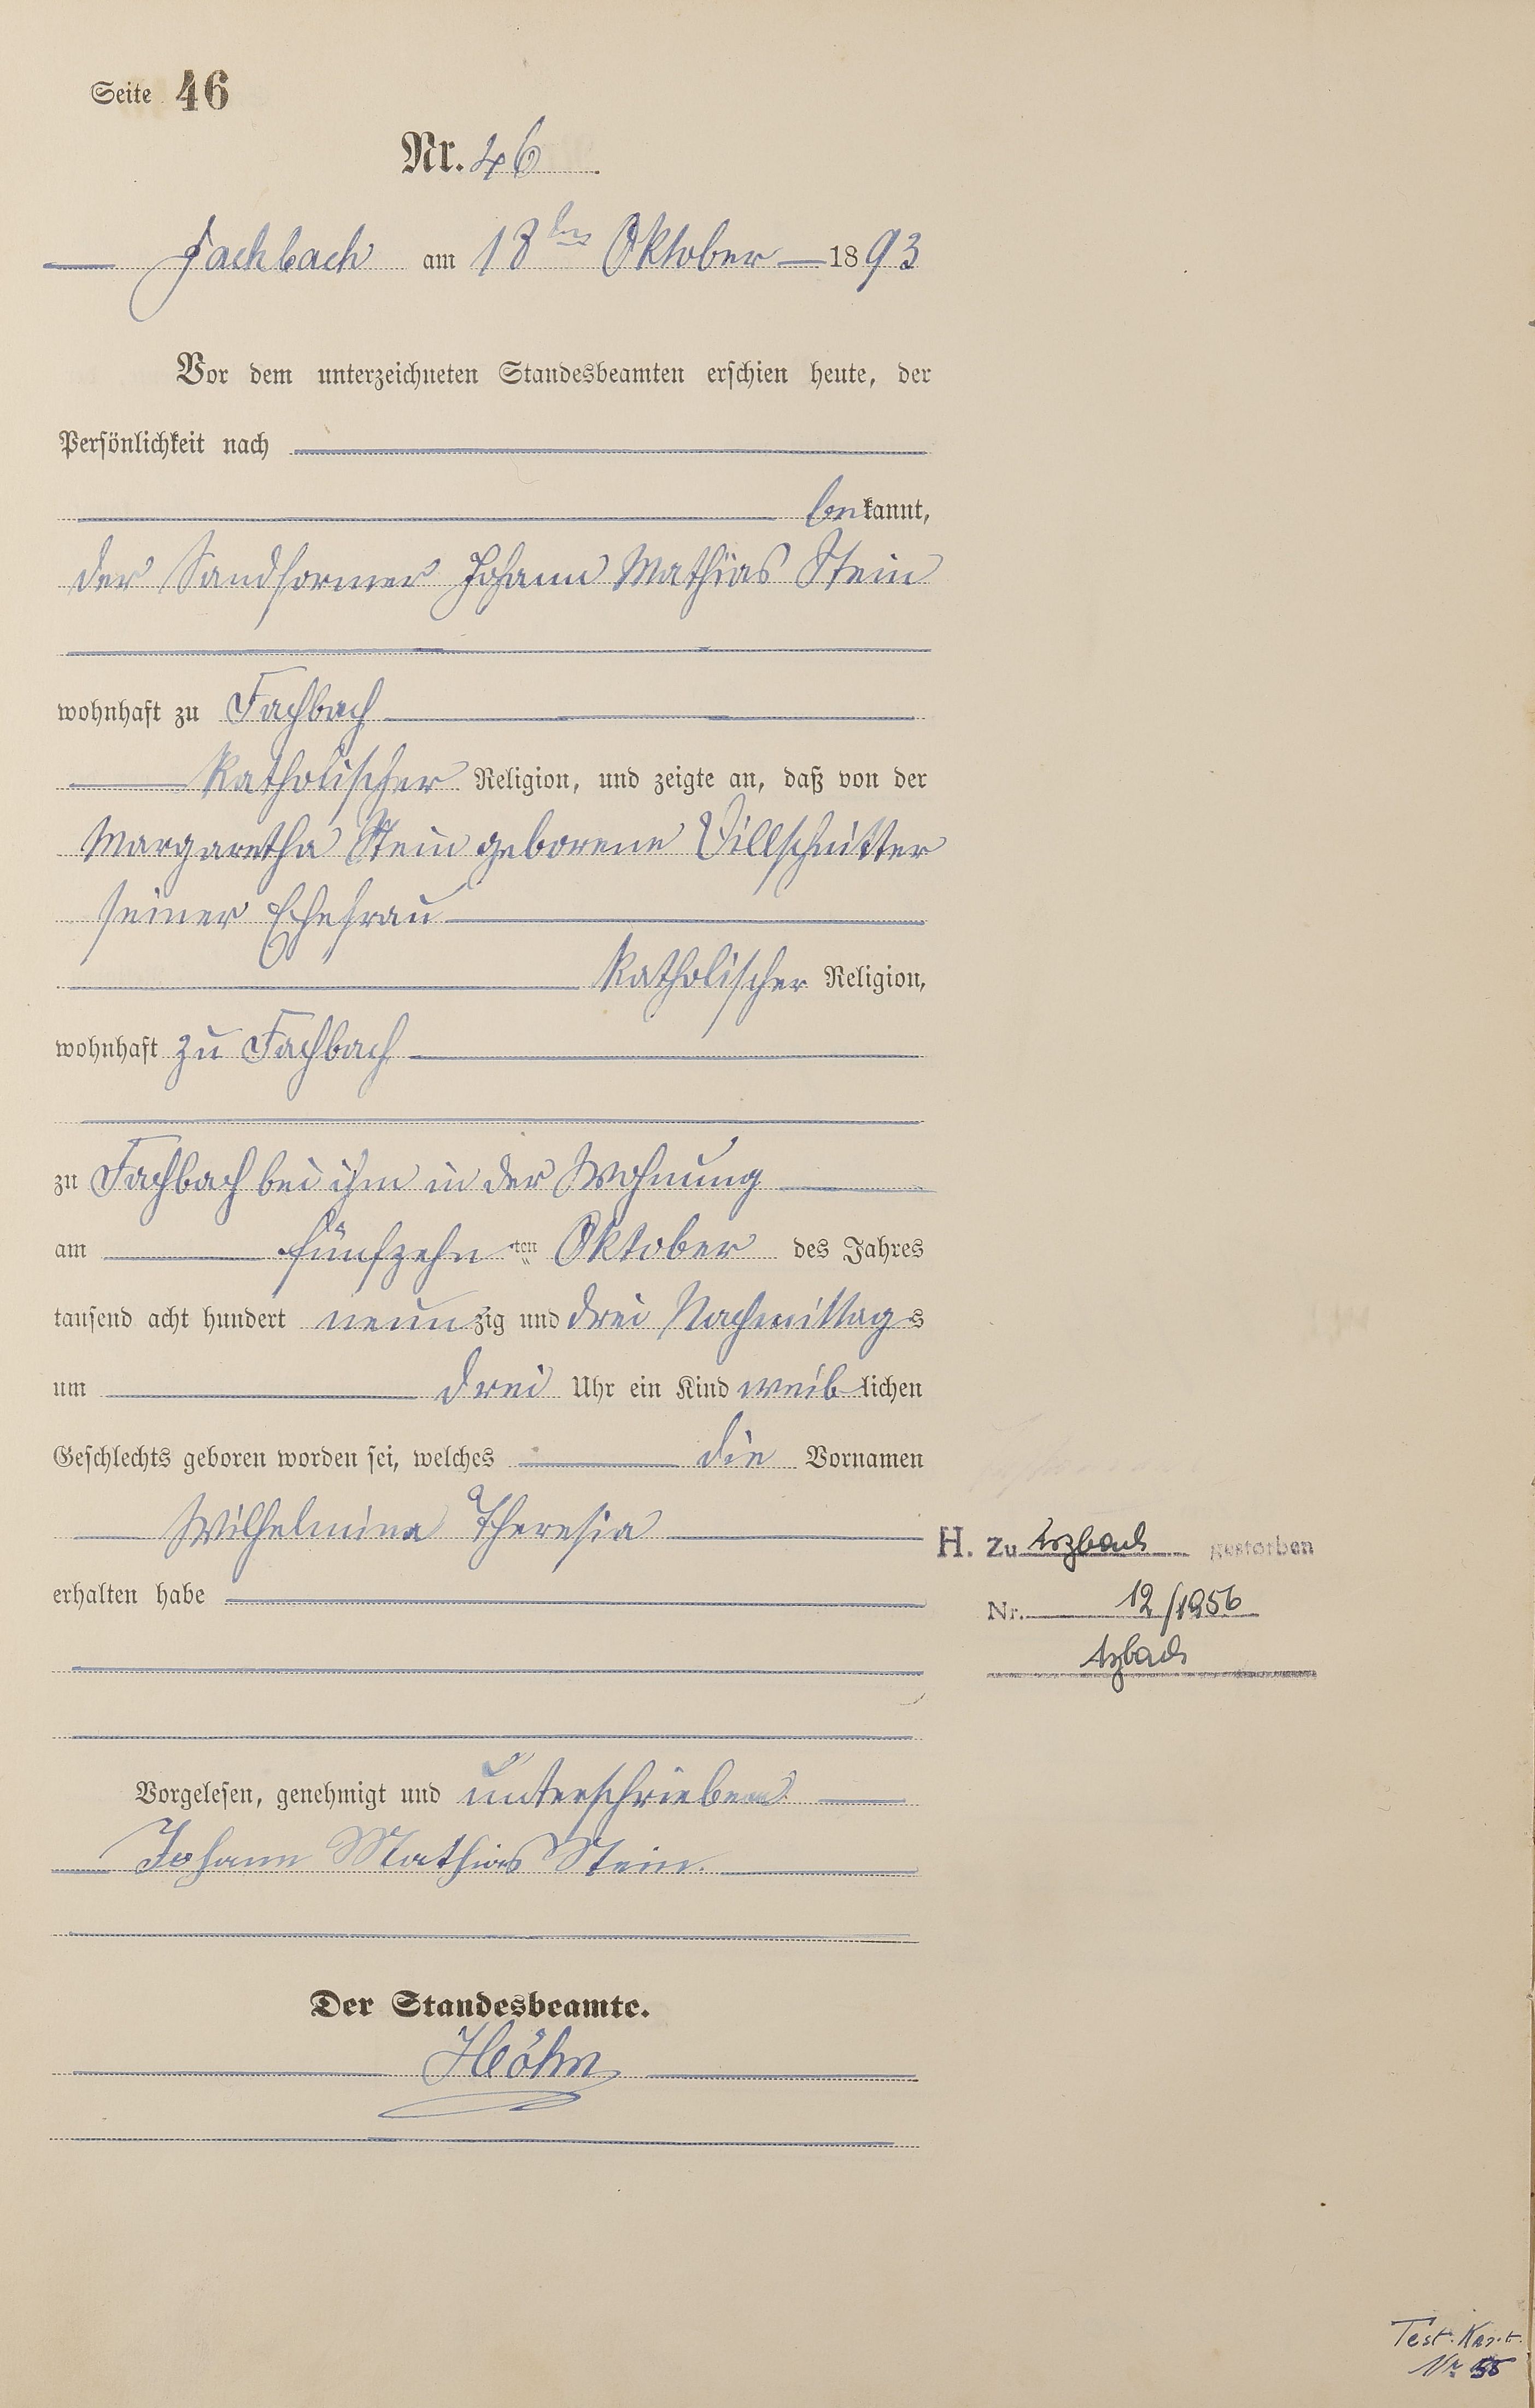 Seite 46
Nr. 46
Fachbach am 18ten Oktober 1893
Vor dem unterzeichneten Standesbeamten erschien heute, der
Persönlichkeit nach
bekannt,
der Sandformer Johann Mathias Stein
wohnhaft zu Fachbach
katholischer Religion, und zeigte an, daß von der
Margaretha Stein geborene Villschnitter
seiner Ehefrau
katholischer Religion,
wohnhaft zu Fachbach
zu Fachbach bei ihm in der Wohnung
am fünfzehnten Oktober des Jahres
tausend acht hundert neunzig und drei Nachmittags
um drei Uhr ein Kind weiblichen
Geschlechts geboren worden sei, welches die Vornamen
Wilhelmina Theresia
erhalten habe
H. Zu Arzbach gestorben
Nr. 12/1956
Arzbach
Vorgelesen, genehmigt und unterschrieben
Johann Mathias Stein.
Der Standesbeamte.
Höhn
Test. Kart.
Nr 55